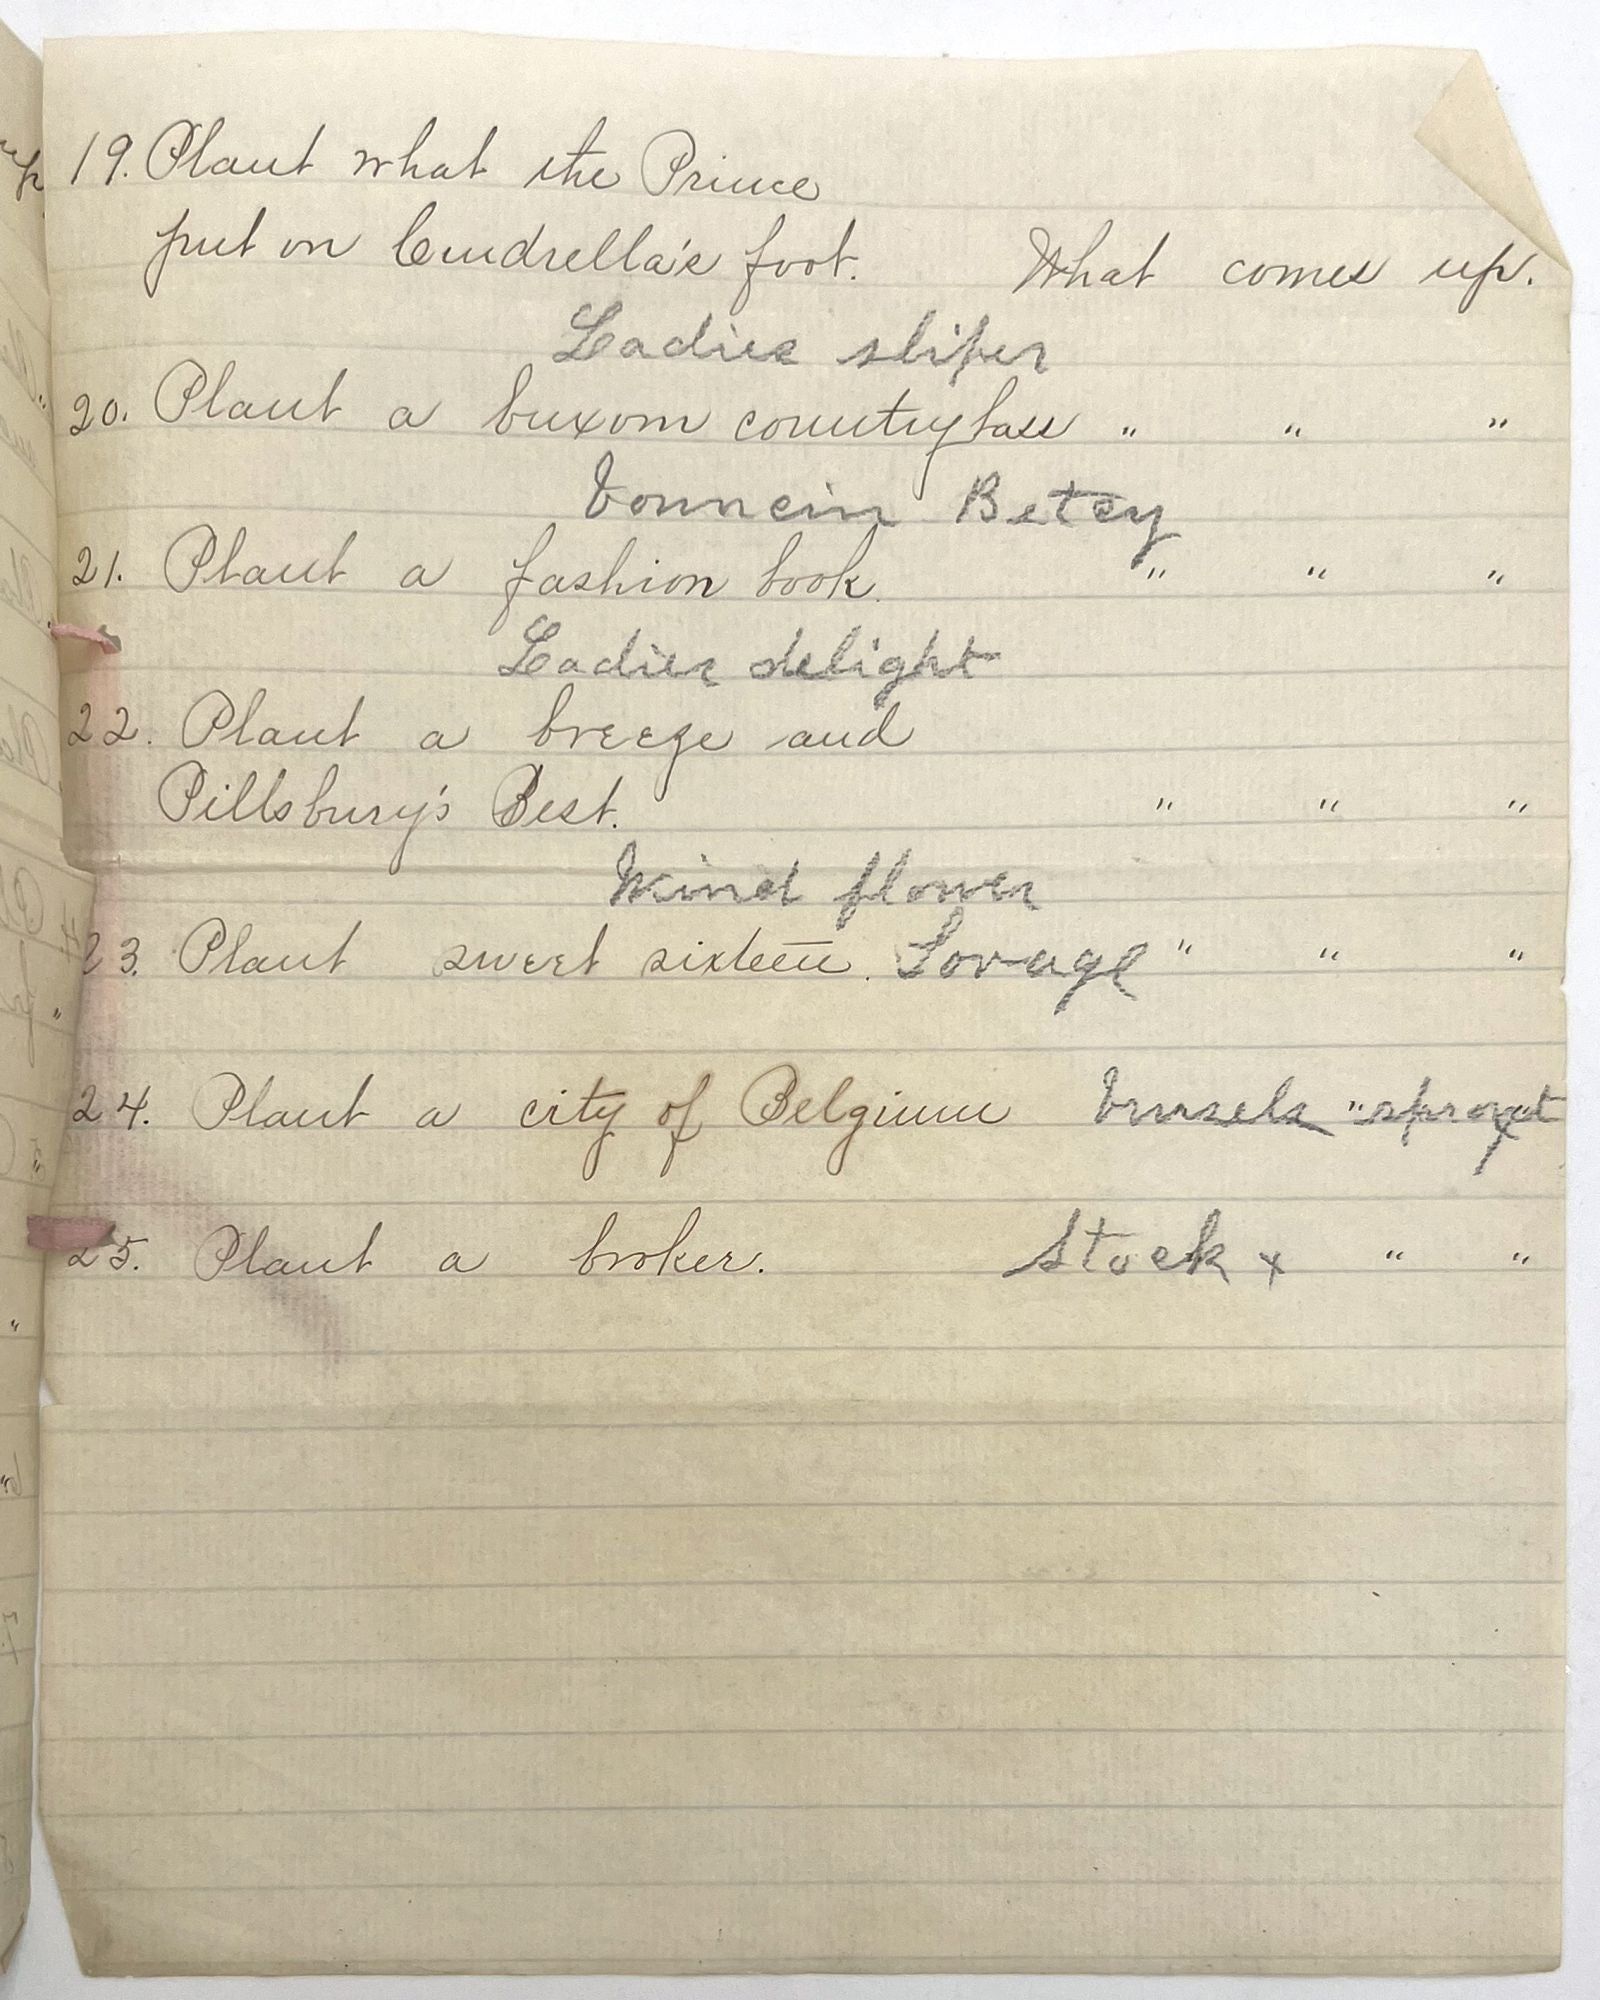 19. Plant what the Prince
put on Cindrella's foot. What comes up.
Ladies sliper
20. Plant a buxom country lass " " "
bouncin Betsy
21. Plant a fashion book. " " "
Ladies delight
22. Plant a breeze and
Pillsbury's Best. " " "
Wind flower
23. Plant sweet sixteen. Lovage " " "
24. Plant a city of Belgium brusels " sprout
25. Plant a broker. Stock x " "